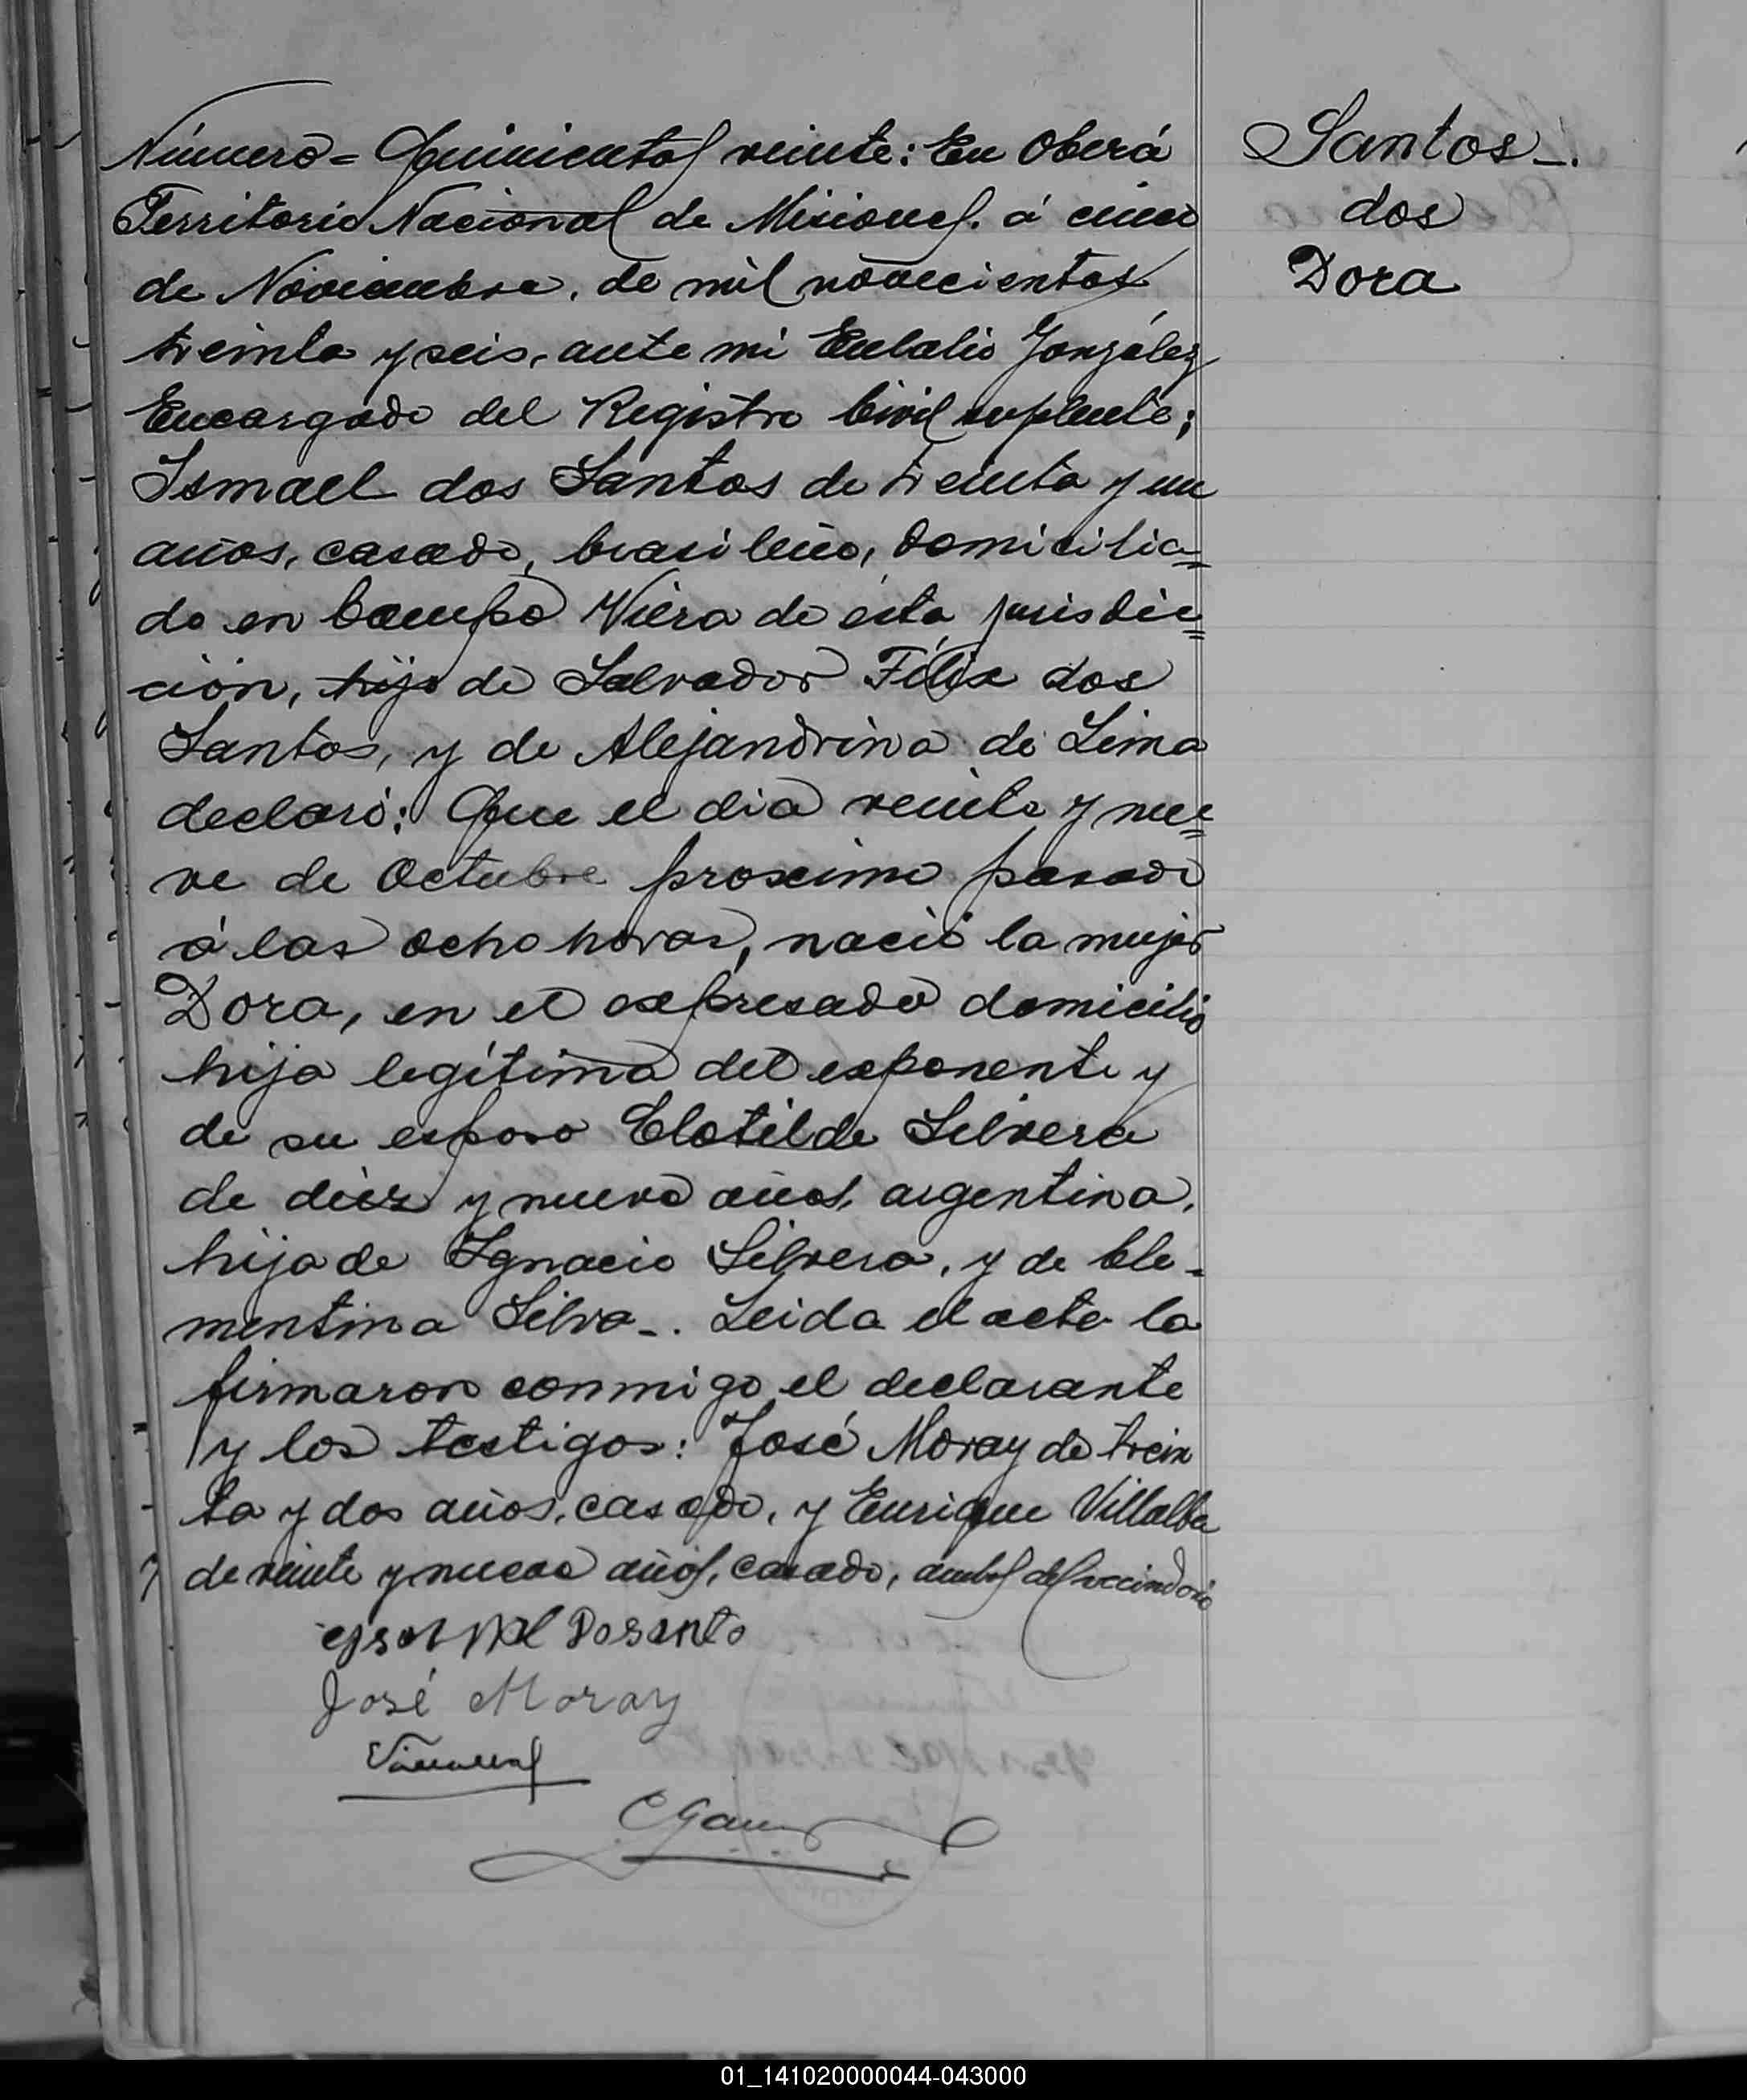 Número = Quinientos veinte: En Oberá
Territorio Nacional de Misiones. á cinco
de Noviembre, de mil novecientos
treinta y seis, ante mi Eulalio González
Encargado del Registro Civil suplente;
Ismael dos Santos de treinta y un
años, casado, brasileño, domicilia=
do en Campo Viera de ésta jurisdic=
ción, hijo de Salvador Félix dos
Santos, y de Alejandrina de Lima
declaró: Que el dia veinte y nue=
ve de Octubre proximo pasado
á las ocho horas, nació la mujer
Dora, en el expresado domicilio
hija legítima del exponente y
de su esposa Clotilde Silvera
de diez y nueve años, argentina,
hija de Ignacio Silvera, y de Cle-
mentina Silva-. Leida el acta la
firmaron conmigo, el declarante
y los testigos: José Moray de trein
ta y dos años, casado, y Enrique Villalba
de veinte y nueve años, casado, ambos del vecindario
José Moray
Santos-.
dos
Dora
01_141020000044-043000